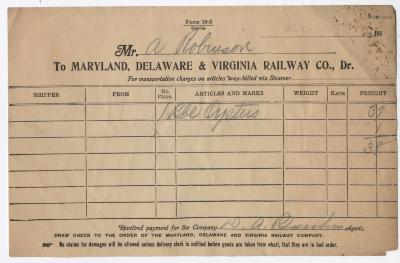 Form 19-S
191
Mr. A Robinson
To MARYLAND, DELAWARE & VIRGINIA RAILWAY CO., Dr.
For transportation charges on articles way-billed via Steamer
SHIPPER FROM No. PKGS. ARTICLES AND MARKS WEIGHT RATE FREIGHT
1 Bbl Oysters 37
1
38
Received payment for the Company D. A. Agent.
DRAW CHECK TO THE ORDER OF THE MARYLAND, DELAWARE AND VIRGINIA RAILWAY COMPANY.
No claims for damages will be allowed unless delivery clerk is notified before goods are taken from wharf, that they are in bad order.